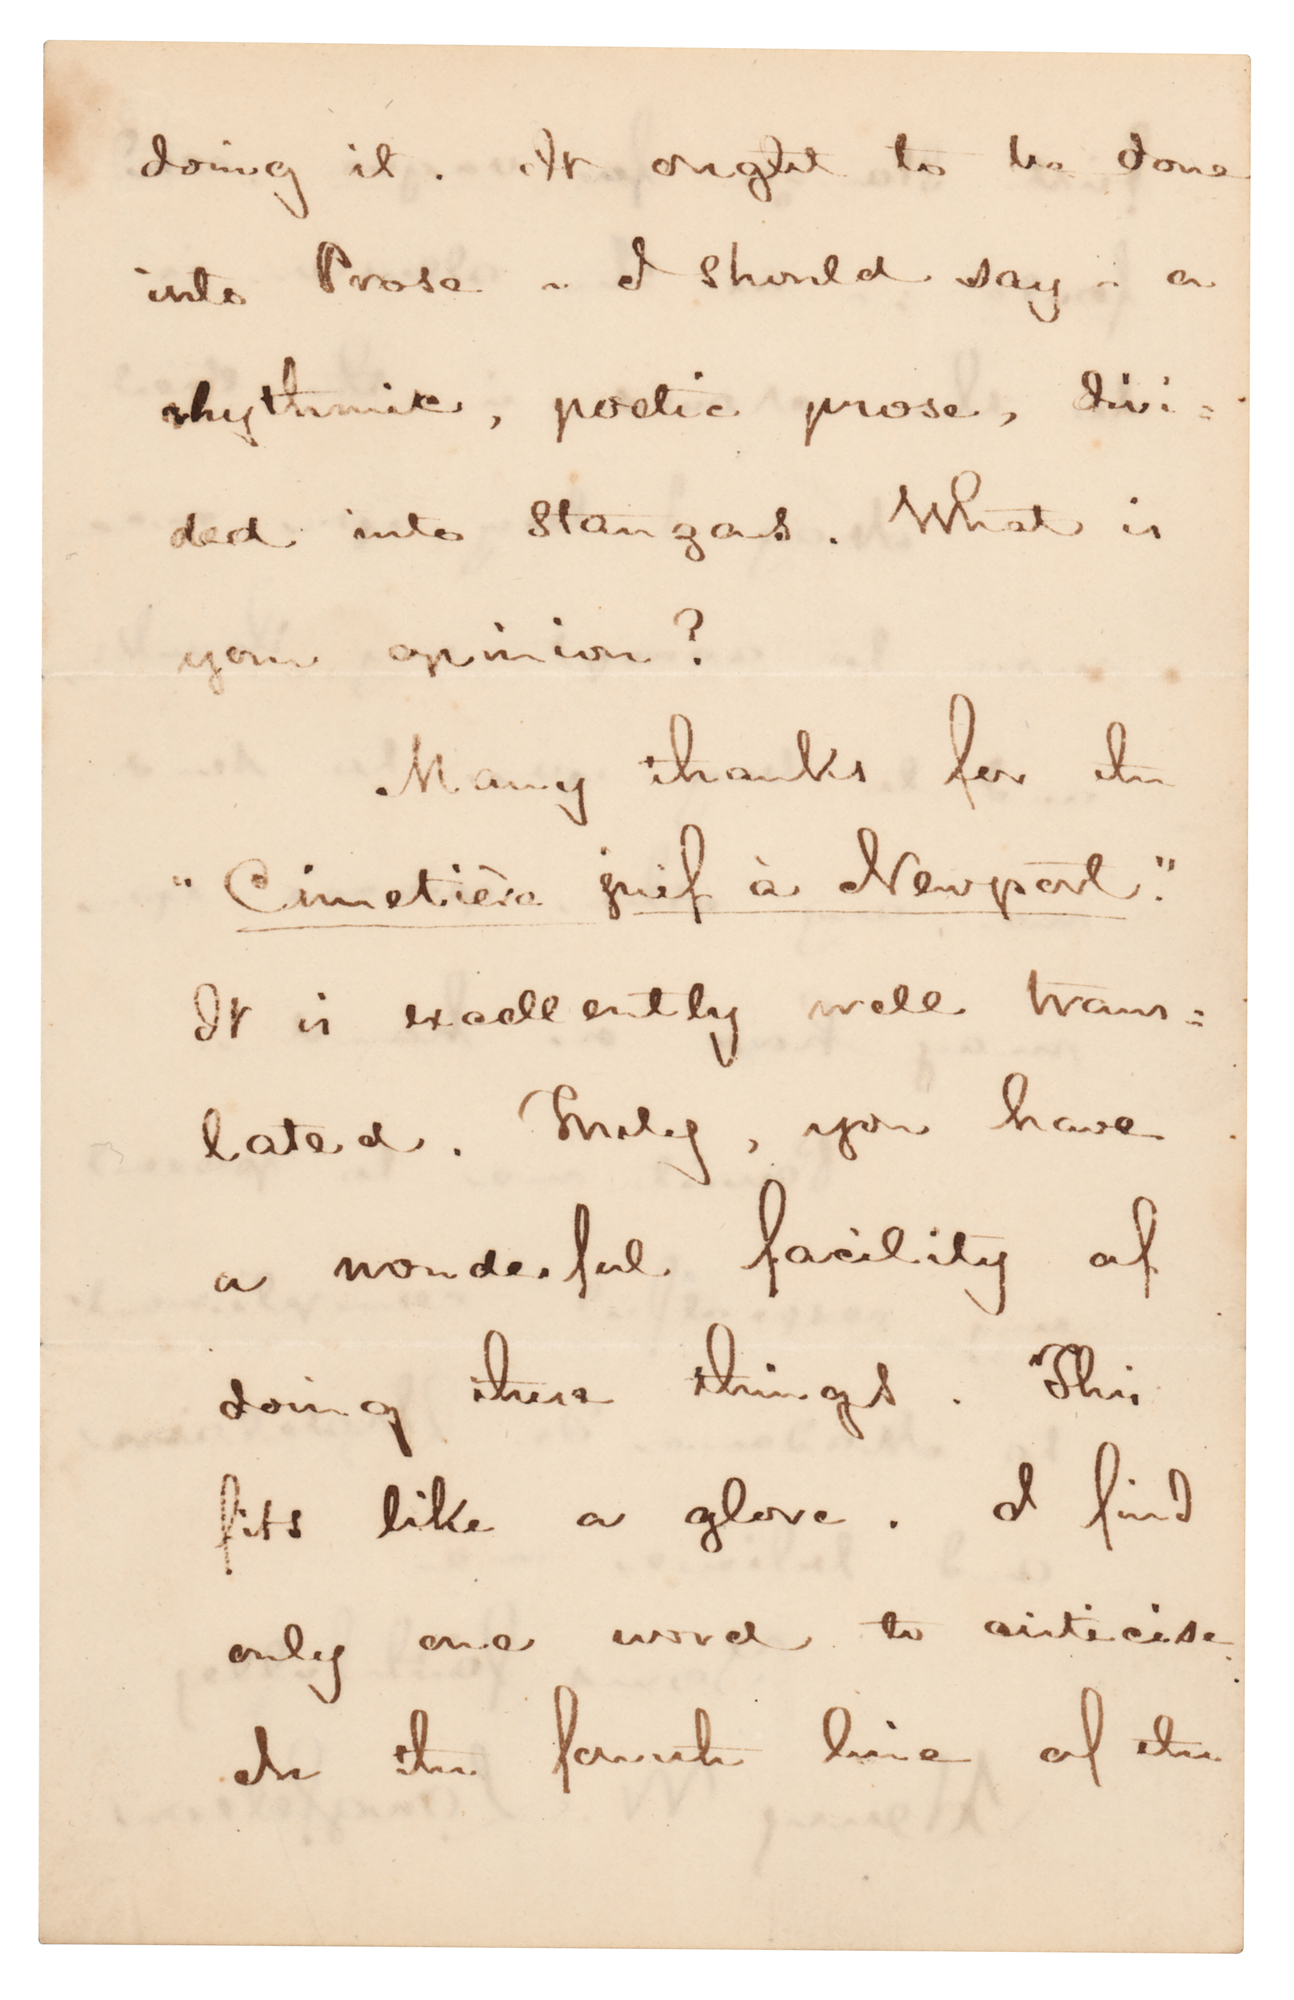 doing it. It ought to be done
into Prose - I should say - a
rhythmic, poetic prose, divi=
ded into stanzas. What is
your opinion?
Many thanks for the
"Cimetière juif à Newport."
It is excellently well trans=
lated. Truly, you have
a wonderful facility of
doing these things. This
fits like a glove. I find
only one word to criticise.
In the fourth line of the